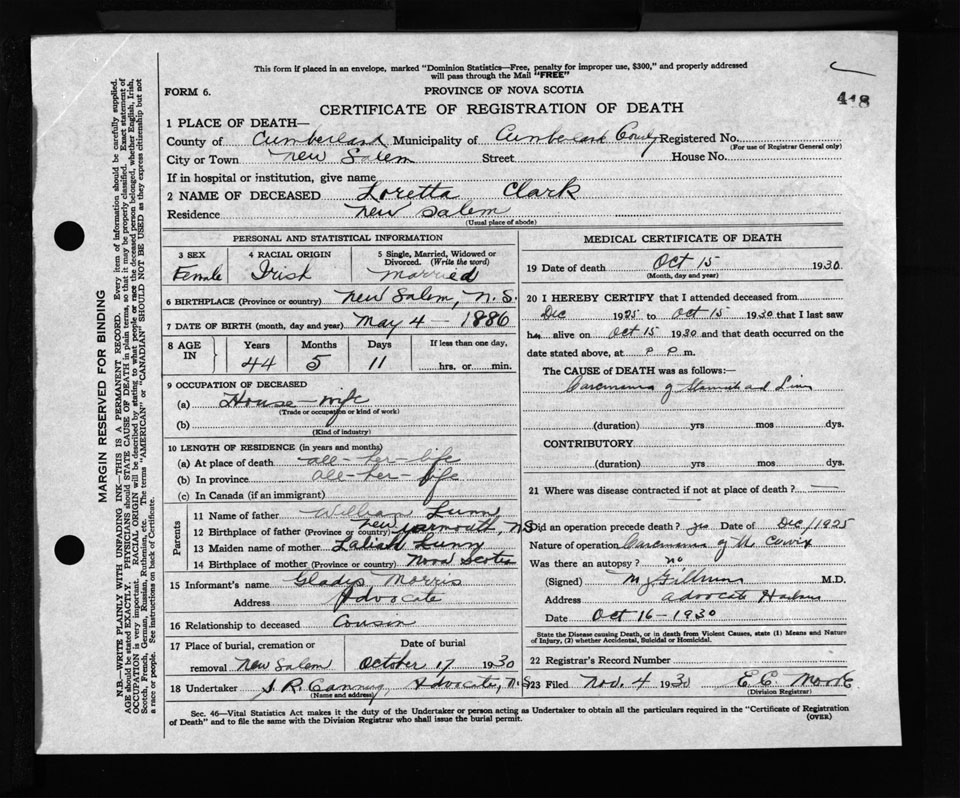 This form if placed in an envelope, marked "Dominion Statistics—Free, penalty for improper use, $300," and properly addressed
will pass through the Mail "FREE"
FORM 6.
PROVINCE OF NOVA SCOTIA
418
CERTIFICATE OF REGISTRATION OF DEATH
1 PLACE OF DEATH—
County of Cumberland Municipality of Cumberland County Registered No.
(For use of Registrar General only)
City or Town New Salem Street House No.
If in hospital or institution, give name
2 NAME OF DECEASED Loretta Clark
Residence New Salem
(Usual place of abode)
PERSONAL AND STATISTICAL INFORMATION
3 SEX
Female
4 RACIAL ORIGIN
Irish
5 Single, Married, Widowed or
Divorced. (Write the word)
Married
6 BIRTHPLACE (Province or country) New Salem, N.S.
7 DATE OF BIRTH (month, day and year) May 4 — 1886
8 AGE IN
Years Months Days If less than one day,
44 5 11 hrs. or min.
9 OCCUPATION OF DECEASED
(a) House-wife
(Trade or occupation or kind of work)
(b)
(Kind of industry)
10 LENGTH OF RESIDENCE (in years and months)
(a) At place of death all-her-life
(b) In province all-her-life
(c) In Canada (if an immigrant)
Parents
11 Name of father William Lunn
12 Birthplace of father (Province or country) New Yarmouth, NS
13 Maiden name of mother Lunny
14 Birthplace of mother (Province or country) Nova Scotia
15 Informant's name Gladys Morris
Address Advocate
16 Relationship to deceased Cousin
17 Place of burial, cremation or
removal New Salem
Date of burial
October 17 1930
18 Undertaker S. R. Canning, Advocate, N.S
(Name and address)
MEDICAL CERTIFICATE OF DEATH
19 Date of death Oct 15 1930
(Month, day and year)
20 I HEREBY CERTIFY that I attended deceased from
Dec 1925 to Oct 15 1930 that I last saw
her alive on Oct 15 1930 and that death occurred on
date stated above, at P m.
The CAUSE of DEATH was as follows:—
(duration) yrs mos dys.
CONTRIBUTORY
(duration) yrs mos dys.
21 Where was disease contracted if not at place of death?
Did an operation precede death? yes Date of Dec/1925
Nature of operation
Was there an autopsy? no
(Signed) M.D.
Address Advocate Harbour
Date Oct 16 - 1930
State the Disease causing Death, or in death from Violent Causes, state (1) Means and Nature
of Injury, (2) whether Accidental, Suicidal or Homicidal.
22 Registrar's Record Number
23 Filed Nov. 4 1930 E C Moore
(Division Registrar)
Sec. 46—Vital Statistics Act makes it the duty of the Undertaker or person acting as Undertaker to obtain all the particulars required in the "Certificate of Registration
of Death" and to file the same with the Division Registrar who shall issue the burial permit.
(OVER)
MARGIN RESERVED FOR BINDING
N.B.—WRITE PLAINLY WITH UNFADING INK—THIS IS A PERMANENT RECORD. Every item of information should be carefully supplied.
AGE should be stated EXACTLY. PHYSICIANS should STATE CAUSE OF DEATH in plain terms, so that it may be properly classified. Exact statement of
OCCUPATION is very important. RACIAL ORIGIN will be described by stating to what people or race the deceased person belonged, whether English, Irish,
Scotch, French, German, Russian, Ruthenian, etc. The terms "AMERICAN" or "CANADIAN" SHOULD NOT BE USED as they express citizenship but not
a race or people. See instructions on back of Certificate.